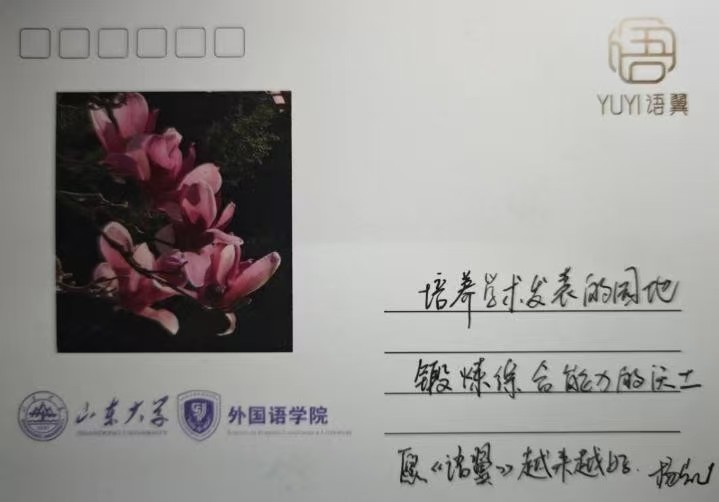 语
YUYI 语翼
培养学术发表的园地
锻炼综合能力的沃土
愿《语翼》越来越好.
山东大学
SHANDONG UNIVERSITY
外国语学院